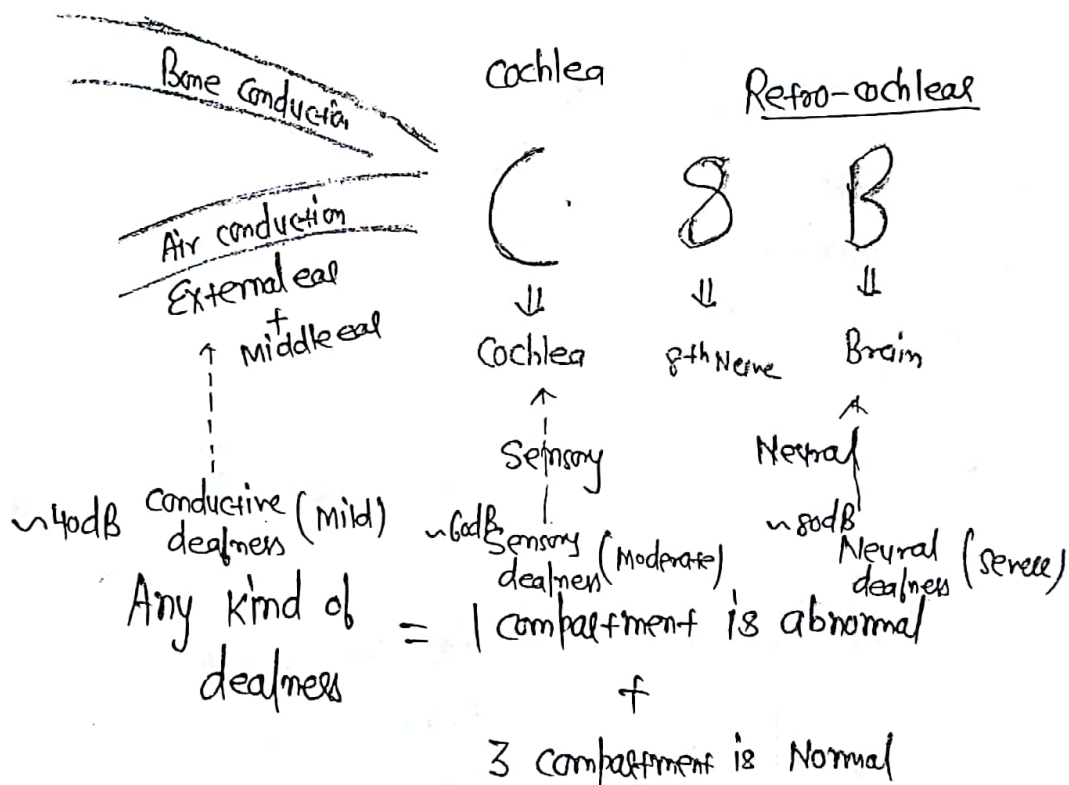 Bone conduction
Cochlea
Retro-cochlear
Air conduction
External ear
+
Middle ear
C 8 B
Cochlea
8th Nerve
Brain
Sensory
Neural
~40dB conductive deafness (Mild)
~60dB Sensory deafness (Moderate)
~80dB Neural deafness (Severe)
Any kind of deafness = 1 compartment is abnormal
+
3 compartment is Normal